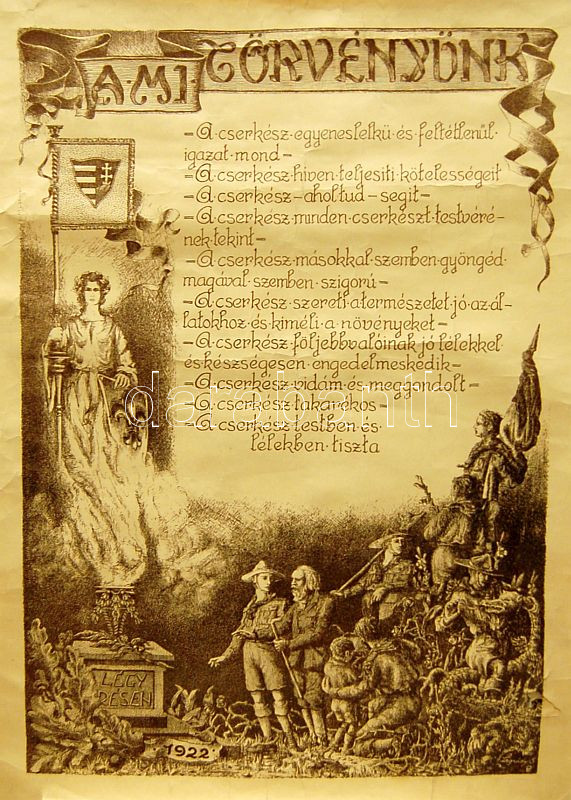 A·MI TÖRVÉNYÜNK
-A cserkész egyeneslelkü és feltétlenül
igazat mond-
-A cserkész hiven teljesiti kötelességeit
-A cserkész-ahol tud-segit-
-A cserkész minden cserkészt testvéré-
nek tekint-
-A cserkész másokkal szemben gyöngéd
magával szemben szigorú-
-A cserkész szereti a természetet jó az ál-
latokhoz és kiméli a növényeket-
-A cserkész följebbvalóinak jó lélekkel
és készségesen engedelmeskedik-
-A cserkész vidám és meggondolt-
-A cserkész takarékos-
-A cserkész testben és
lélekben tiszta
darabanth
LÉGY
RÉSEN
1922